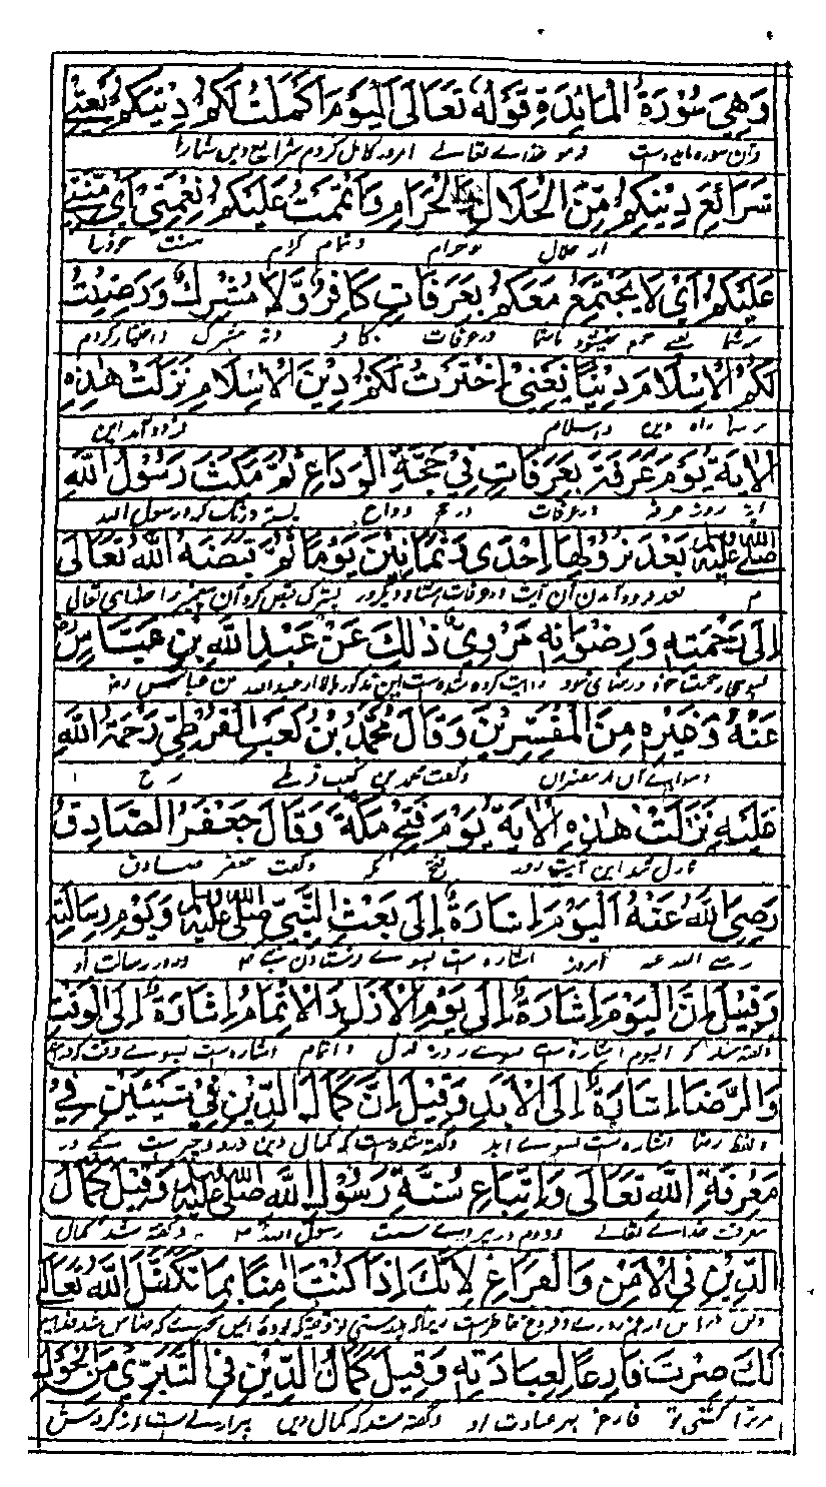 وَهِيَ سُوْرَةُ الْمَائِدَةِ قَوْلُهُ تَعَالَى اَلْيَوْمَ اَكْمَلْتُ لَكُمْ دِيْنَكُمْ يَعْنِيْ
وآن سوره مائده است امروز کامل کردم شرایع دین شما را
شَرَائِعَ دِيْنِكُمْ مِّنَ الْحَلَالِ وَالْحَرَامِ وَاَتْمَمْتُ عَلَيْكُمْ نِعْمَتِيْ اَيْ مِنَّتِيْ
از حلال و حرام و تمام کردم منت خود را
عَلَيْكُمْ اَيْ لَا يَجْتَمِعُ مَعَكُمْ بِعَرَفَاتٍ كَافِرٌ وَّلَا مُشْرِكٌ وَرَضِيْتُ
بر شما یعنی جمع نمیشود با شما در عرفات کافر و نه مشرک و اختیار کردم
لَكُمُ الْاِسْلَامَ دِيْنًا يَعْنِيْ اِخْتَرْتُ لَكُمْ دِيْنَ الْاِسْلَامِ نَزَلَتْ هٰذِهِ
راه دین اسلام فرود آمد این
الْاٰيَةُ يَوْمَ عَرَفَةَ بِعَرَفَاتٍ فِيْ حَجَّةِ الْوَدَاعِ ثُمَّ مَكَثَ رَسُوْلُ اللّٰهِ
آیة روز عرفه در عرفات در حج وداع پستر درنگ کرد رسول الله
صلى الله عليه وسلم بَعْدَ نُزُوْلِهَا اِحْدٰى وَثَمَانِيْنَ يَوْمًا ثُمَّ قَبَضَهُ اللّٰهُ تَعَالٰى
م بعد فرود آمدن آن آیت در عرفات هشتاد و یک روز پستر قبض کرد آن پیغمبر را خدای تعالی
اِلٰى رَحْمَتِهٖ وَرِضْوَانِهٖ مَرْوِيٌّ ذٰلِكَ عَنْ عَبْدِ اللّٰهِ بْنِ عَبَّاسٍ رض
بسوی رحمت خود و رضای خود روایت کرده شده است این مذکور از عبدالله بن عباس رض
عَنْهُ وَغَيْرِهٖ مِنَ الْمُفَسِّرِيْنَ وَقَالَ مُحَمَّدُ بْنُ كَعَبِ الْقُرَظِيّ رَحْمَةُ اللّٰهِ
و سوای آن از مفسران و گفت محمد بن کعب قرظی رح
عَلَيْهِ نَزَلَتْ هٰذِهِ الْاٰيَةُ يَوْمَ فَتْحِ مَكَّةَ وَقَالَ جَعْفَرُ الصَّادِقُ
نازل شد این آیت روز فتح مکه و گفت جعفر صادق
رَضِيَ اللّٰهُ عَنْهُ اَلْيَوْمَ اِشَارَةٌ اِلٰى بَعْثِ النَّبِيِّ صلى الله عليه وسلم وَيَوْمِ رِسَالَتِهٖ
رضی الله عنه امروز اشاره است بسوی فرستادن نبی م و روز رسالت او
وَقِيْلَ اِنَّ الْيَوْمَ اِشَارَةٌ اِلٰى يَوْمِ الْاَزَلِ وَالْاِتْمَامُ اِشَارَةٌ اِلَى الْوَقْتِ
و گفته شد که الیوم اشاره است بسوی روز ازل و اتمام اشاره است بسوی وقت
وَالرِّضَا اِشَارَةٌ اِلَى الْاَبَدِ وَقِيْلَ اِنَّ كَمَالَ الدِّيْنِ فِيْ شَيْئَيْنِ فِيْ
و لفظ رضا اشاره است بسوی ابد و گفته شده است که کمال دین در دو چیز است یکے در
مَعْرِفَةِ اللّٰهِ تَعَالٰى وَاتِّبَاعِ سُنَّةِ رَسُوْلِ اللّٰه صلى الله عليه وسلم وَقِيْلَ كَمَالُ
معرفت خدای تعالی و دوم در پیروی سنت رسول الله م و گفته شد کمال
الدِّيْنِ فِي الْاَمْنِ وَالْفَرَاغِ لِاَنَّكَ اِذَا كُنْتَ اٰمِنًا بِمَا تَكَفَّلَ اللّٰهُ تَعَالٰى
لَكَ صِرْتَ فَارِغًا لِعِبَادَتِهٖ وَقِيْلَ كَمَالُ الدِّيْنِ فِي التَّبَرِّيْ مِنَ الْحَوْلِ
مر ترا گشتی تو فارغ بر عبادت او و گفته شد که کمال دین بیزاری است از گردش